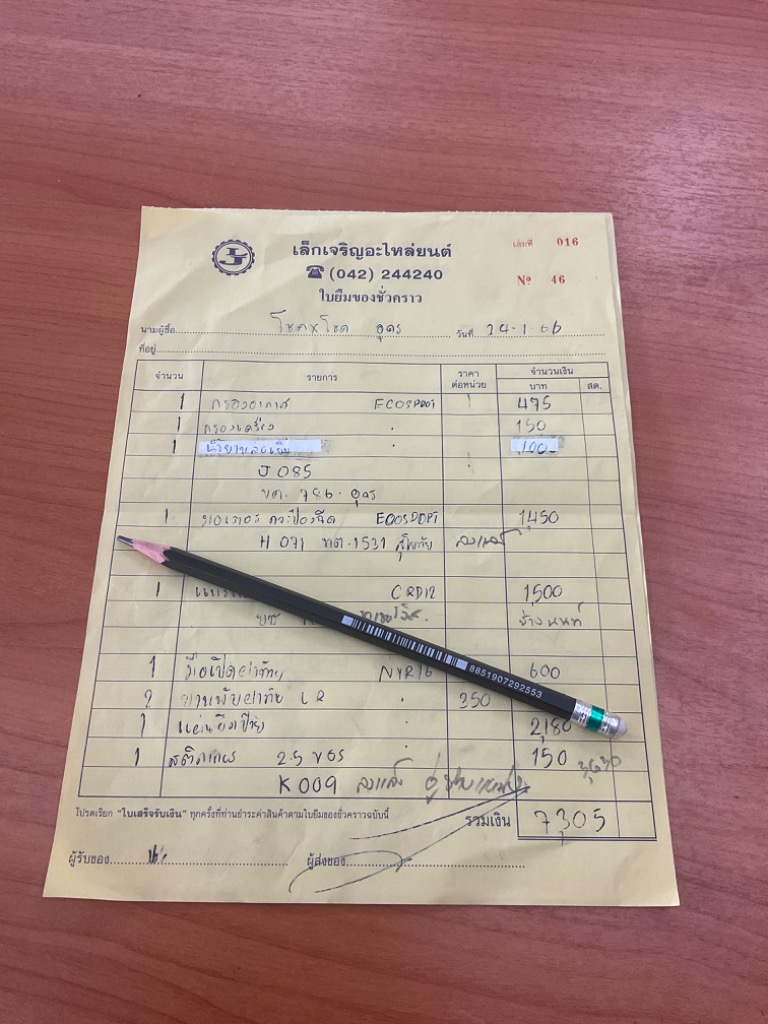 เล็กเจริญอะไหล่ยนต์
เล่มที่ 016
☎ (042) 244240
Nº 46
ใบยืมของชั่วคราว
นามผู้ซื้อ โชคxโชค อุดร วันที่ 24-1-66
ที่อยู่
จำนวน รายการ ราคาต่อหน่วย จำนวนเงิน
บาท สต.
1 กรองอากาศ ECOSPORT 475
1 กรองเครื่อง 150
1 100-
J 085
ขด. 786 - อุดร
1 มอเตอร์ กระป๋องฉีด ECOSPORT 1,450
H 071 ทต-1531 สุโขทัย ลงแล้ว
1 CRD12 1,500
ช่างนนท์
1 มือเปิดฝาท้าย NYR16 600
2 บานพับฝาท้าย LR 350
1 2,180
1 สติกเกอร์ 2.5 VGS 150
3,630
K 009 ลงแล้ว
โปรดเรียก "ใบเสร็จรับเงิน" ทุกครั้งที่ท่านชำระค่าสินค้าตามใบยืมของชั่วคราวฉบับนี้
รวมเงิน 7,305
ผู้รับของ ผู้ส่งของ
8851907292553